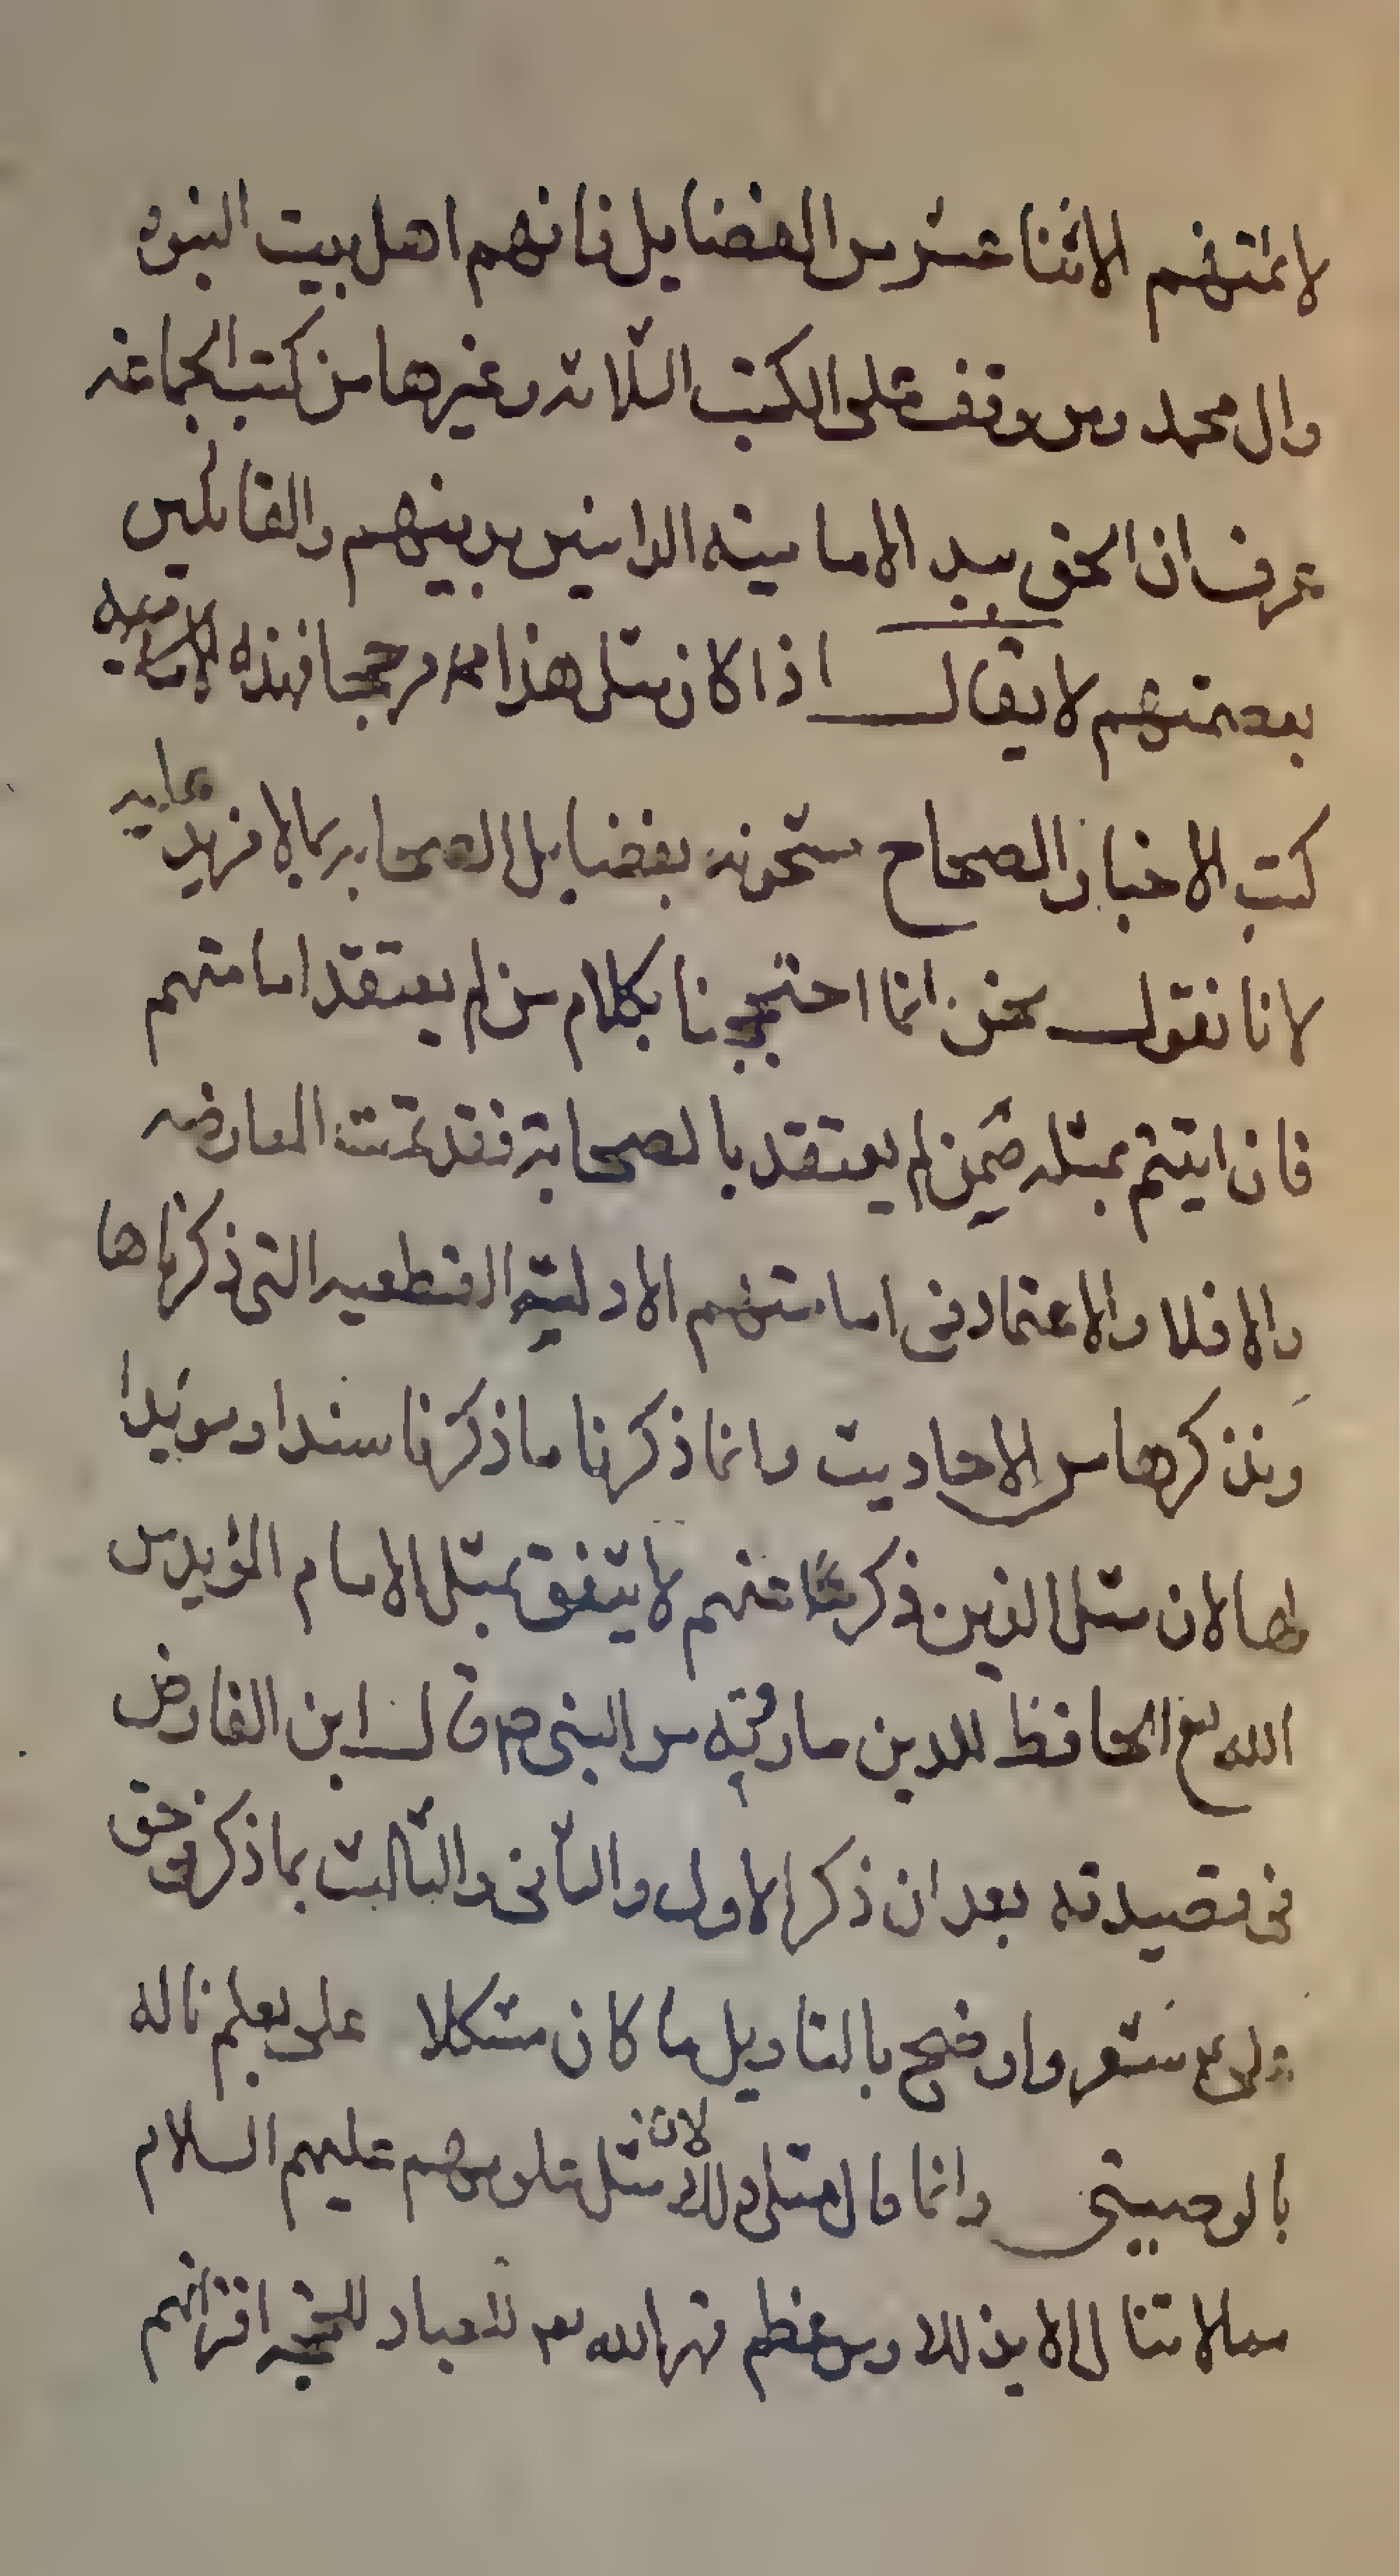 لائمتهم الاثنا عشر من الفضايل فانهم اهل بيت النبوه
وال محمد ومن وقف على الكتب الثلاثه وغيرها من كتب الجماعه
عرف ان الحق بيد الاماميه الدائين بدينهم والقائلين
بعصمتهم لا يقال اذا كان مثل هذا مرجحا فهذه
كتب الاخبار الصحاح مشحونه بفضايل الصحابه بما لا مزيد عليه
لانا نقول نحن انما احتججنا بكلام من لم يعتقد امامتهم
فان اتيتم بمثله ضمن لم يعتقد بالصحابة فقد تمت المعارضه
والا فلا والاعتماد في امامتهم الادلة القطعيه التي ذكرناها
ونذكرها من الاحاديث وانما ذكرنا ما ذكرنا سندا ومويدا
لها لان مثل الذين ذكرنا عنهم لا يتفق بمثل الامام المؤيد من
الله تع الحافظ للدين ما روته من النبي ص قال ابن الفارض
في قصيدته بعد ان ذكر الاول والثاني والثالث بما ذكر في حق
على ع شعر واوضح بالتاويل ما كان مشكلا على بعلم ناله
بالوصيتى وانما قال مثل ذلك لان مثل علومهم عليهم السلام
مما لا تنال الا بذلك ومن عظم قهر الله تع للعباد للحجه اقرانهم